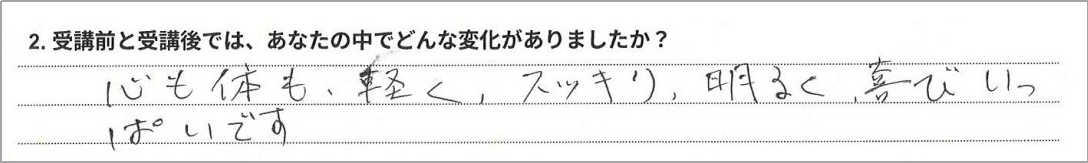 2. 受講前と受講後では、あなたの中でどんな変化がありましたか？
心も体も、軽く、スッキリ、明るく、喜びいっ
ぱいです